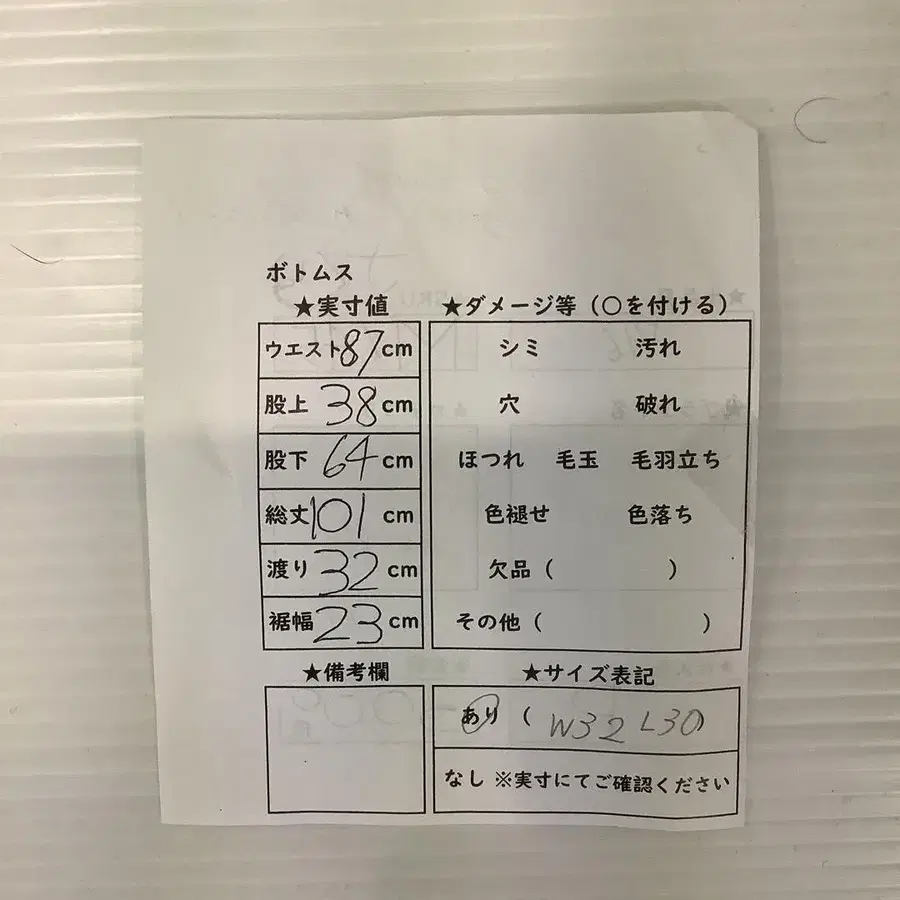 ボトムス
★実寸値
ウエスト87cm
股上 38cm
股下 64cm
総丈101cm
渡り32cm
裾幅23cm
★ダメージ等（○を付ける）
シミ 汚れ
穴 破れ
ほつれ 毛玉 毛羽立ち
色褪せ 色落ち
欠品（ ）
その他（ ）
★備考欄
★サイズ表記
あり（ W32 L30）
なし ※実寸にてご確認ください